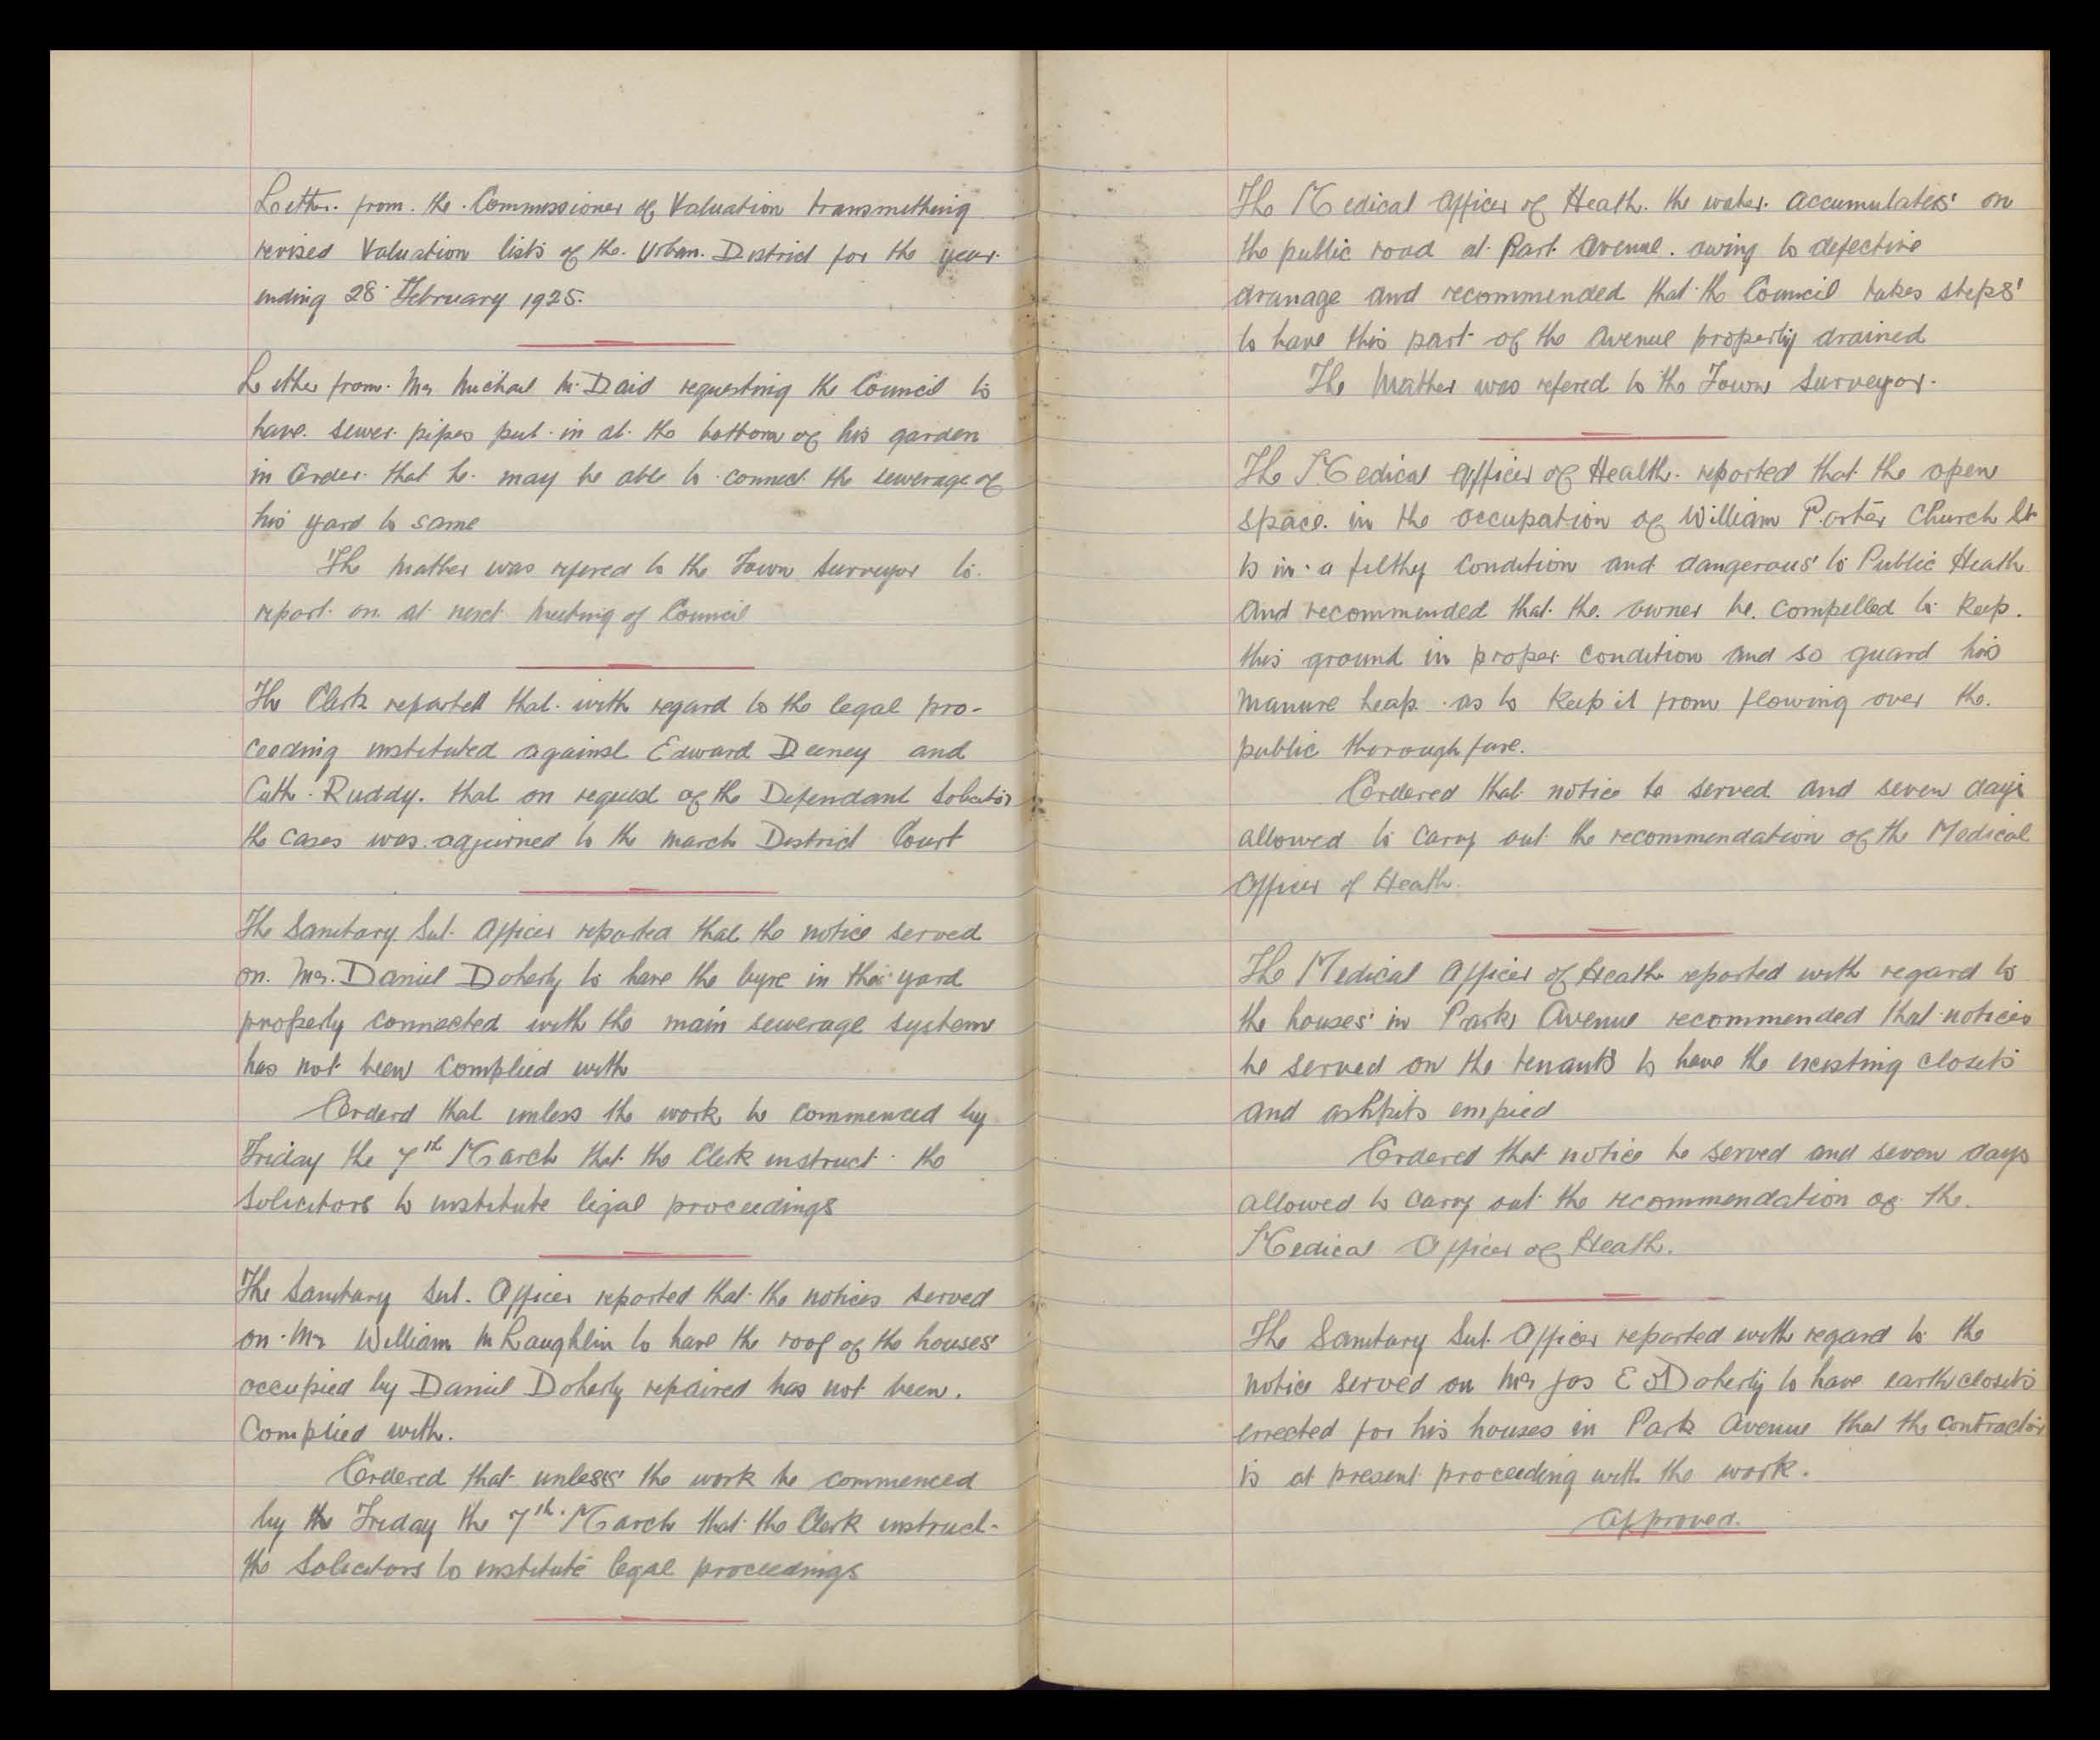 Letter from the Commissioner of Valuation transmitting
revised Valuation lists of the Urban District for the year
ending 28 February 1925.
Letter from Mr Michael McDaid requesting the Council to
have sewer pipes put in at the bottom of his garden
in Order that he may be able to connect the sewerage of
his yard to same
The Matter was refered to the Town Surveyor to
report on at next Meeting of Council
The Clerk reported that with regard to the legal pro-
ceeding instituted against Edward Deeney and
Cath. Ruddy. that on request of the Defendant Solicitor
the cases was adjurned to the March District Court
The Sanitary Sub. Officer reported that the notice served
on Mr. Daniel Doherty to have the byre in the yard
properly connected with the main sewerage system
has not been Complied with
Orderd that unless the work be commenced by
Friday the 7th March that the Clerk instruct the
Solicitors to institute legal proceedings
The Sanitary Sub. Officer reported that the notices served
on Mr William McLaughlin to have the roof of the houses
occupied by Daniel Doherty repaired has not been.
Complied with.
Ordered that unless the work be commenced
by the Friday the 7th March that the Clerk instruct
the Solicitors to institute legal proceedings
The Medical Officer of Heath. the water accumulates on
the public road at Part Avenue. owing to defective
dranage and recommended that the Council takes steps
to have this part of the Avenue properly drained
The Matter was refered to the Town Surveyor.
The Medical Officer of Health. reported that the open
space in the occupation of William Porter Church St
is in a filthy Condition and dangerous to Public Heath
And recommended that the owner be compelled to keep.
this ground in proper Condition and so guard his
Manure heap as to keep it from flowing over the.
public thoroughfare.
Ordered that notice be served and seven days
allowed to carry out the recommendation of the Medical
Officer of Heath.
The Medical Officer of Heath reported with regard to
the houses in Park Avenue recommended that notices
be served on the tenants to have the existing closets
and ashpits empied
Ordered that notice be served and seven days
allowed to carry out the recommendation of the.
Medical Officer of Heath.
The Sanitary Sub. Officer reported with regard to the
notice served on Mr Jas E O'Doherty to have earth closets
errected for his houses in Park Avenue that the contractor
is at present proceeding with the work.
Approved.